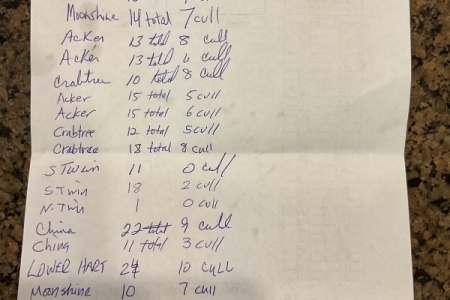 Moonshine 14 total 7 cull
Acker 13 total 8 cull
Acker 13 total 6 cull
Crabtree 10 total 8 cull
Acker 15 total 5 cull
Acker 15 total 6 cull
Crabtree 12 total 5 cull
Crabtree 18 total 8 cull
S Twin 11 0 cull
S Twin 18 2 cull
N-Twin 1 0 cull
China 22 total 9 cull
China 11 total 3 cull
LOWER HART 24 10 CULL
Moonshine 10 7 cull